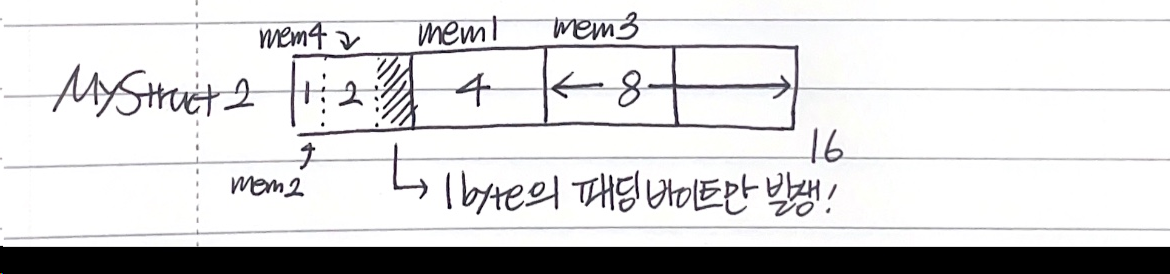 mem4 mem1 mem3
MyStruct 2 1 2 4 8
16
mem2
1byte의 패딩 바이트만 발생!